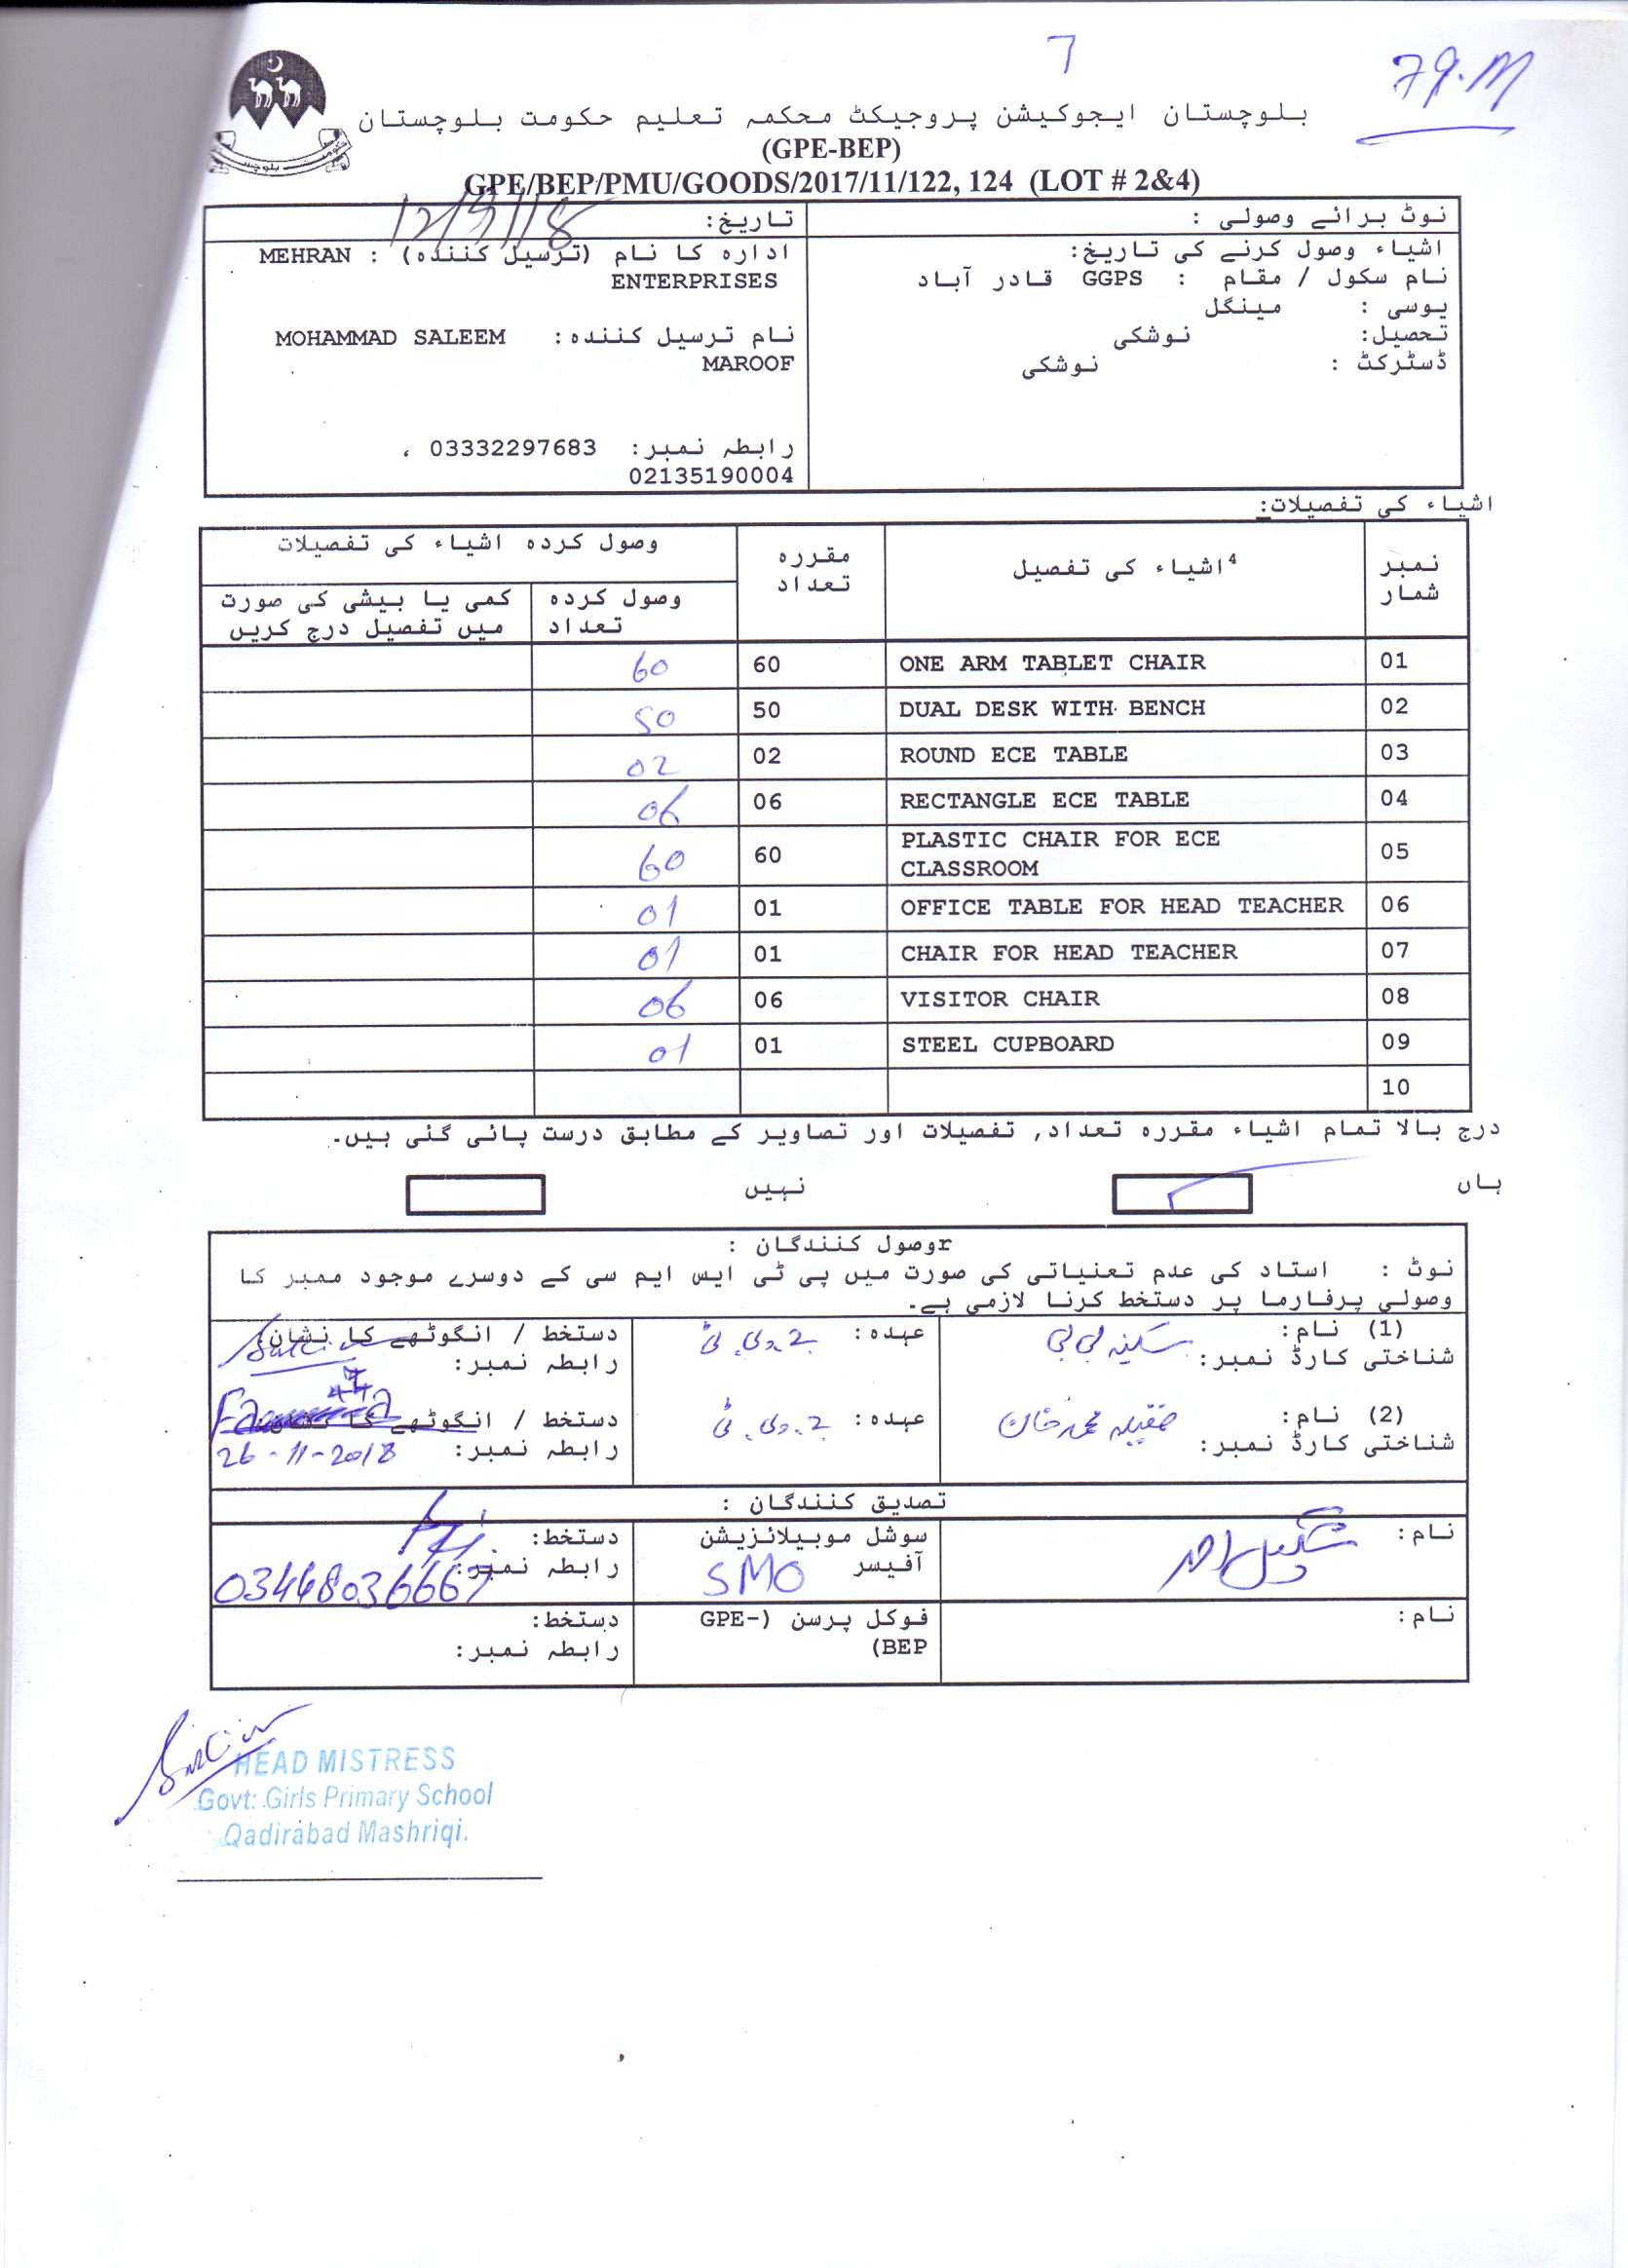 7
79.M
بلوچستان ایجوکیشن پروجیکٹ محکمہ تعلیم حکومت بلوچستان
(GPE-BEP)
GPE/BEP/PMU/GOODS/2017/11/122, 124 (LOT # 2&4)
نوٹ برائے وصولی :
اشیاء وصول کرنے کی تاریخ:
نام سکول / مقام : GGPS قادر آباد
یوسی : مینگل
تحصیل: نوشکی
ڈسٹرکٹ : نوشکی
تاریخ: 12/9/18
ادارہ کا نام (ترسیل کنندہ) : MEHRAN
ENTERPRISES
نام ترسیل کنندہ: MOHAMMAD SALEEM
MAROOF
رابطہ نمبر: 03332297683 ،
02135190004
اشیاء کی تفصیلات:
نمبر شمار | 4اشیاء کی تفصیل | مقررہ تعداد | وصول کردہ اشیاء کی تفصیلات
وصول کردہ تعداد | کمی یا بیشی کی صورت میں تفصیل درج کریں
01 ONE ARM TABLET CHAIR 60 60
02 DUAL DESK WITH BENCH 50 50
03 ROUND ECE TABLE 02 02
04 RECTANGLE ECE TABLE 06 06
05 PLASTIC CHAIR FOR ECE CLASSROOM 60 60
06 OFFICE TABLE FOR HEAD TEACHER 01 01
07 CHAIR FOR HEAD TEACHER 01 01
08 VISITOR CHAIR 06 06
09 STEEL CUPBOARD 01 01
10
درج بالا تمام اشیاء مقررہ تعداد, تفصیلات اور تصاویر کے مطابق درست پائی گئی ہیں۔
ہاں نہیں
rوصول کنندگان :
نوٹ : استاد کی عدم تعنیاتی کی صورت میں پی ٹی ایس ایم سی کے دوسرے موجود ممبر کا
وصولی پرفارما پر دستخط کرنا لازمی ہے۔
(1) نام: سکینہ بی بی عہدہ: جے.وی.ٹی دستخط / انگوٹھے کا نشان:
شناختی کارڈ نمبر: رابطہ نمبر:
(2) نام: محمد خان عہدہ: جے.وی.ٹی دستخط / انگوٹھے کا نشان:
شناختی کارڈ نمبر: رابطہ نمبر: 26-11-2018
تصدیق کنندگان :
نام: شکیل احمد سوشل موبیلائزیشن دستخط:
آفیسر SMO رابطہ نمبر: 03448036667
نام: فوکل پرسن (GPE- دستخط:
BEP) رابطہ نمبر:
HEAD MISTRESS
Govt: Girls Primary School
Qadirabad Mashriqi.